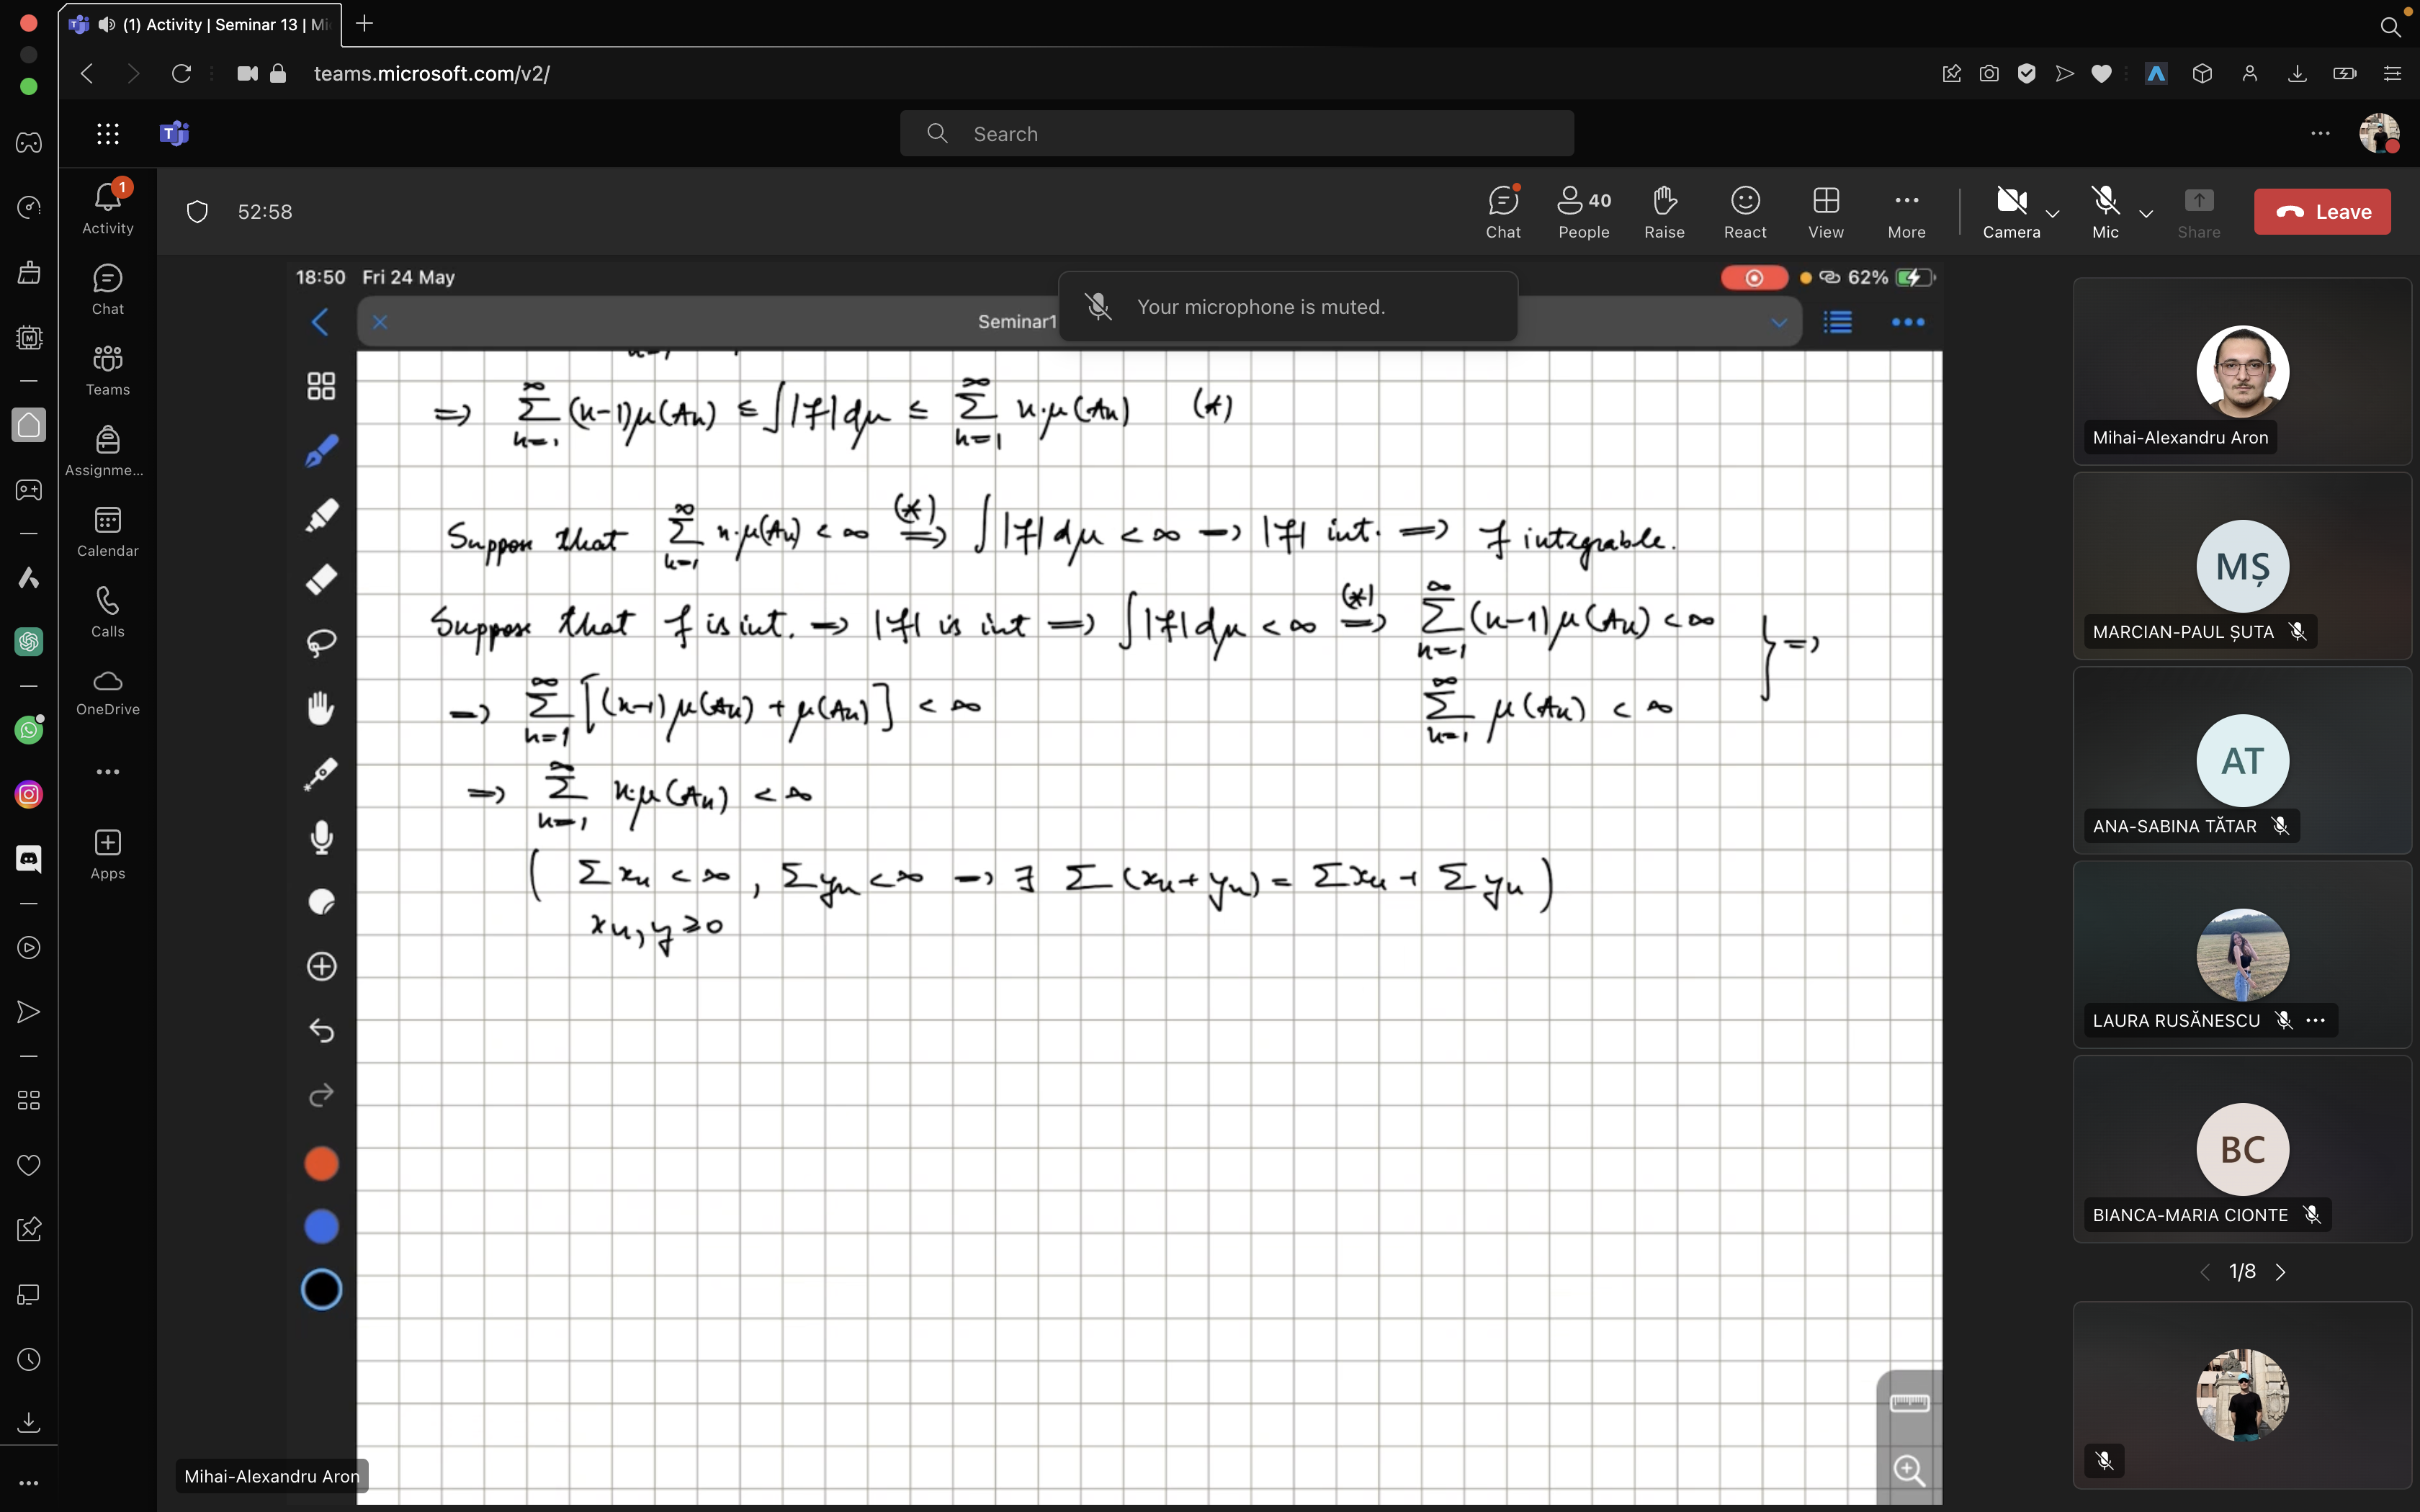 (1) Activity | Seminar 13 | Mi
teams.microsoft.com/v2/
Search
1
Activity
Chat
Teams
Assignme...
Calendar
Calls
OneDrive
Apps
52:58
Chat
40
People
Raise
React
View
More
Camera
Mic
Share
Leave
18:50 Fri 24 May
62%
Seminar1
Your microphone is muted.
=> ∑_{n=1}^{∞} (n-1)μ(An) ≤ ∫|f|dμ ≤ ∑_{n=1}^{∞} n·μ(An) (*)
Suppose that ∑_{n=1}^{∞} n·μ(An) < ∞ (*)=> ∫|f|dμ < ∞ => |f| int. => f integrable.
Suppose that f is int. => |f| is int => ∫|f|dμ < ∞ (*)=> ∑_{n=1}^{∞} (n-1)μ(An) < ∞ } =>
=> ∑_{n=1}^{∞} [(n-1)μ(An) + μ(An)] < ∞ ∑_{n=1}^{∞} μ(An) < ∞
=> ∑_{n=1}^{∞} n·μ(An) < ∞
( ∑ xn < ∞, ∑ yn < ∞ => ∃ ∑ (xn + yn) = ∑ xn + ∑ yn )
xn, y ≥ 0
Mihai-Alexandru Aron
Mihai-Alexandru Aron
MȘ
MARCIAN-PAUL ȘUTA
AT
ANA-SABINA TĂTAR
LAURA RUSĂNESCU
BC
BIANCA-MARIA CIONTE
1/8